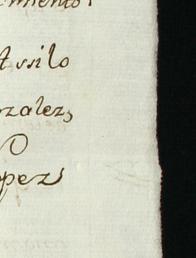 miento.
Assilo
nzalez,
opez